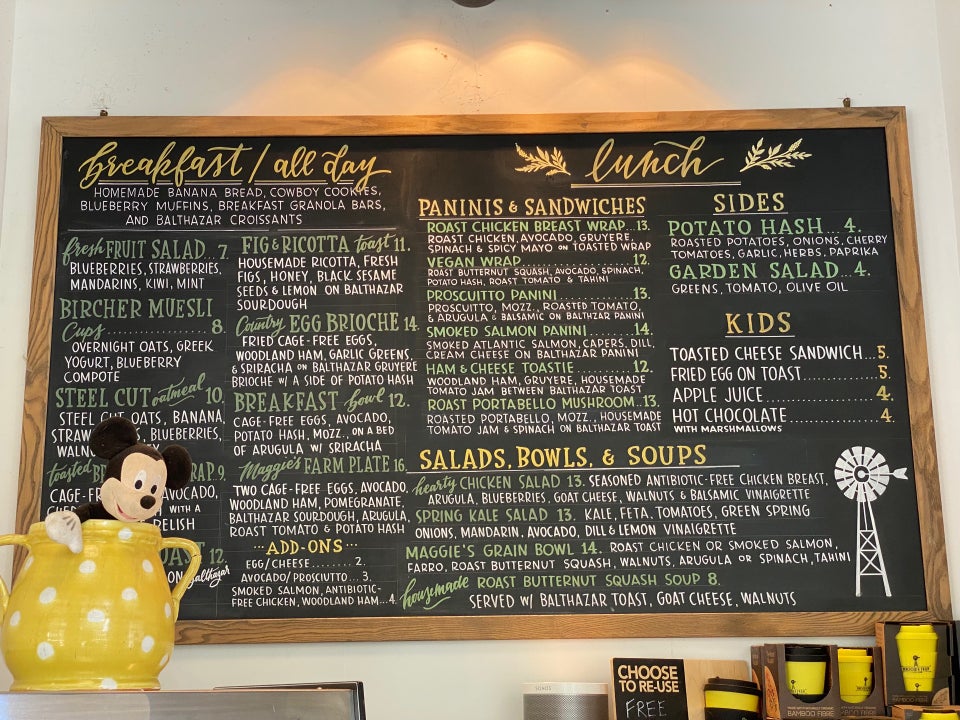 breakfast / all day
HOMEMADE BANANA BREAD, COWBOY COOKIES,
BLUEBERRY MUFFINS, BREAKFAST GRANOLA BARS,
AND BALTHAZAR CROISSANTS
fresh FRUIT SALAD .. 7.
BLUEBERRIES, STRAWBERRIES,
MANDARINS, KIWI, MINT
BIRCHER MUESLI
Cups.................... 8.
OVERNIGHT OATS, GREEK
YOGURT, BLUEBERRY
COMPOTE
STEEL CUT oatmeal 10.
STEEL CUT OATS, BANANA,
BLUEBERRIES,
toasted
9.
CAGE-
AVOCADO,
WITH A
RELISH
12.
Balthazar
FIG & RICOTTA toast 11.
HOUSEMADE RICOTTA, FRESH
FIGS, HONEY, BLACK SESAME
SEEDS & LEMON ON BALTHAZAR
SOURDOUGH
Country EGG BRIOCHE 14.
FRIED CAGE-FREE EGGS,
WOODLAND HAM, GARLIC GREENS,
& SRIRACHA ON BALTHAZAR GRUYERE
BRIOCHE W/ A SIDE OF POTATO HASH
BREAKFAST bowl 12.
CAGE-FREE EGGS, AVOCADO,
POTATO HASH, MOZZ., ON A BED
OF ARUGULA W/ SRIRACHA
Maggie's FARM PLATE 16.
TWO CAGE-FREE EGGS, AVOCADO,
WOODLAND HAM, POMEGRANATE,
BALTHAZAR SOURDOUGH, ARUGULA,
ROAST TOMATO & POTATO HASH
...ADD-ONS...
EGG/CHEESE........2.
AVOCADO/PROSCIUTTO...3.
SMOKED SALMON, ANTIBIOTIC-
FREE CHICKEN, WOODLAND HAM...4.
lunch
PANINIS & SANDWICHES
ROAST CHICKEN BREAST WRAP...13.
ROAST CHICKEN, AVOCADO, GRUYERE,
SPINACH & SPICY MAYO ON TOASTED WRAP
VEGAN WRAP.................12.
ROAST BUTTERNUT SQUASH, AVOCADO, SPINACH,
POTATO HASH, ROAST TOMATO & TAHINI
PROSCUITTO PANINI............13.
PROSCUITTO, MOZZ., ROASTED TOMATO,
& ARUGULA & BALSAMIC ON BALTHZAR PANINI
SMOKED SALMON PANINI.......14.
SMOKED ATLANTIC SALMON, CAPERS, DILL,
CREAM CHEESE ON BALTHAZAR PANINI
HAM & CHEESE TOASTIE..........12.
WOODLAND HAM, GRUYERE, HOUSEMADE
TOMATO JAM BETWEEN BALTHAZAR TOAST
ROAST PORTABELLO MUSHROOM..13.
ROASTED PORTABELLO, MOZZ., HOUSEMADE
TOMATO JAM & SPINACH ON BALTHAZAR TOAST
SIDES
POTATO HASH... 4.
ROASTED POTATOES, ONIONS, CHERRY
TOMATOES, GARLIC, HERBS, PAPRIKA
GARDEN SALAD...4.
GREENS, TOMATO, OLIVE OIL
KIDS
TOASTED CHEESE SANDWICH...5.
FRIED EGG ON TOAST.............5.
APPLE JUICE....................4.
HOT CHOCOLATE................4.
WITH MARSHMALLOWS
SALADS, BOWLS, & SOUPS
hearty CHICKEN SALAD 13. SEASONED ANTIBIOTIC-FREE CHICKEN BREAST,
ARUGULA, BLUEBERRIES, GOAT CHEESE, WALNUTS & BALSAMIC VINAIGRETTE
SPRING KALE SALAD 13. KALE, FETA, TOMATOES, GREEN SPRING
ONIONS, MANDARIN, AVOCADO, DILL & LEMON VINAIGRETTE
MAGGIE'S GRAIN BOWL 14. ROAST CHICKEN OR SMOKED SALMON,
FARRO, ROAST BUTTERNUT SQUASH, WALNUTS, ARUGULA OR SPINACH, TAHINI
housemade ROAST BUTTERNUT SQUASH SOUP 8.
SERVED W/ BALTHAZAR TOAST, GOAT CHEESE, WALNUTS
SONOS
CHOOSE
TO RE-USE
FREE
BAMBOO FIBRE
BAMBOO FIBRE